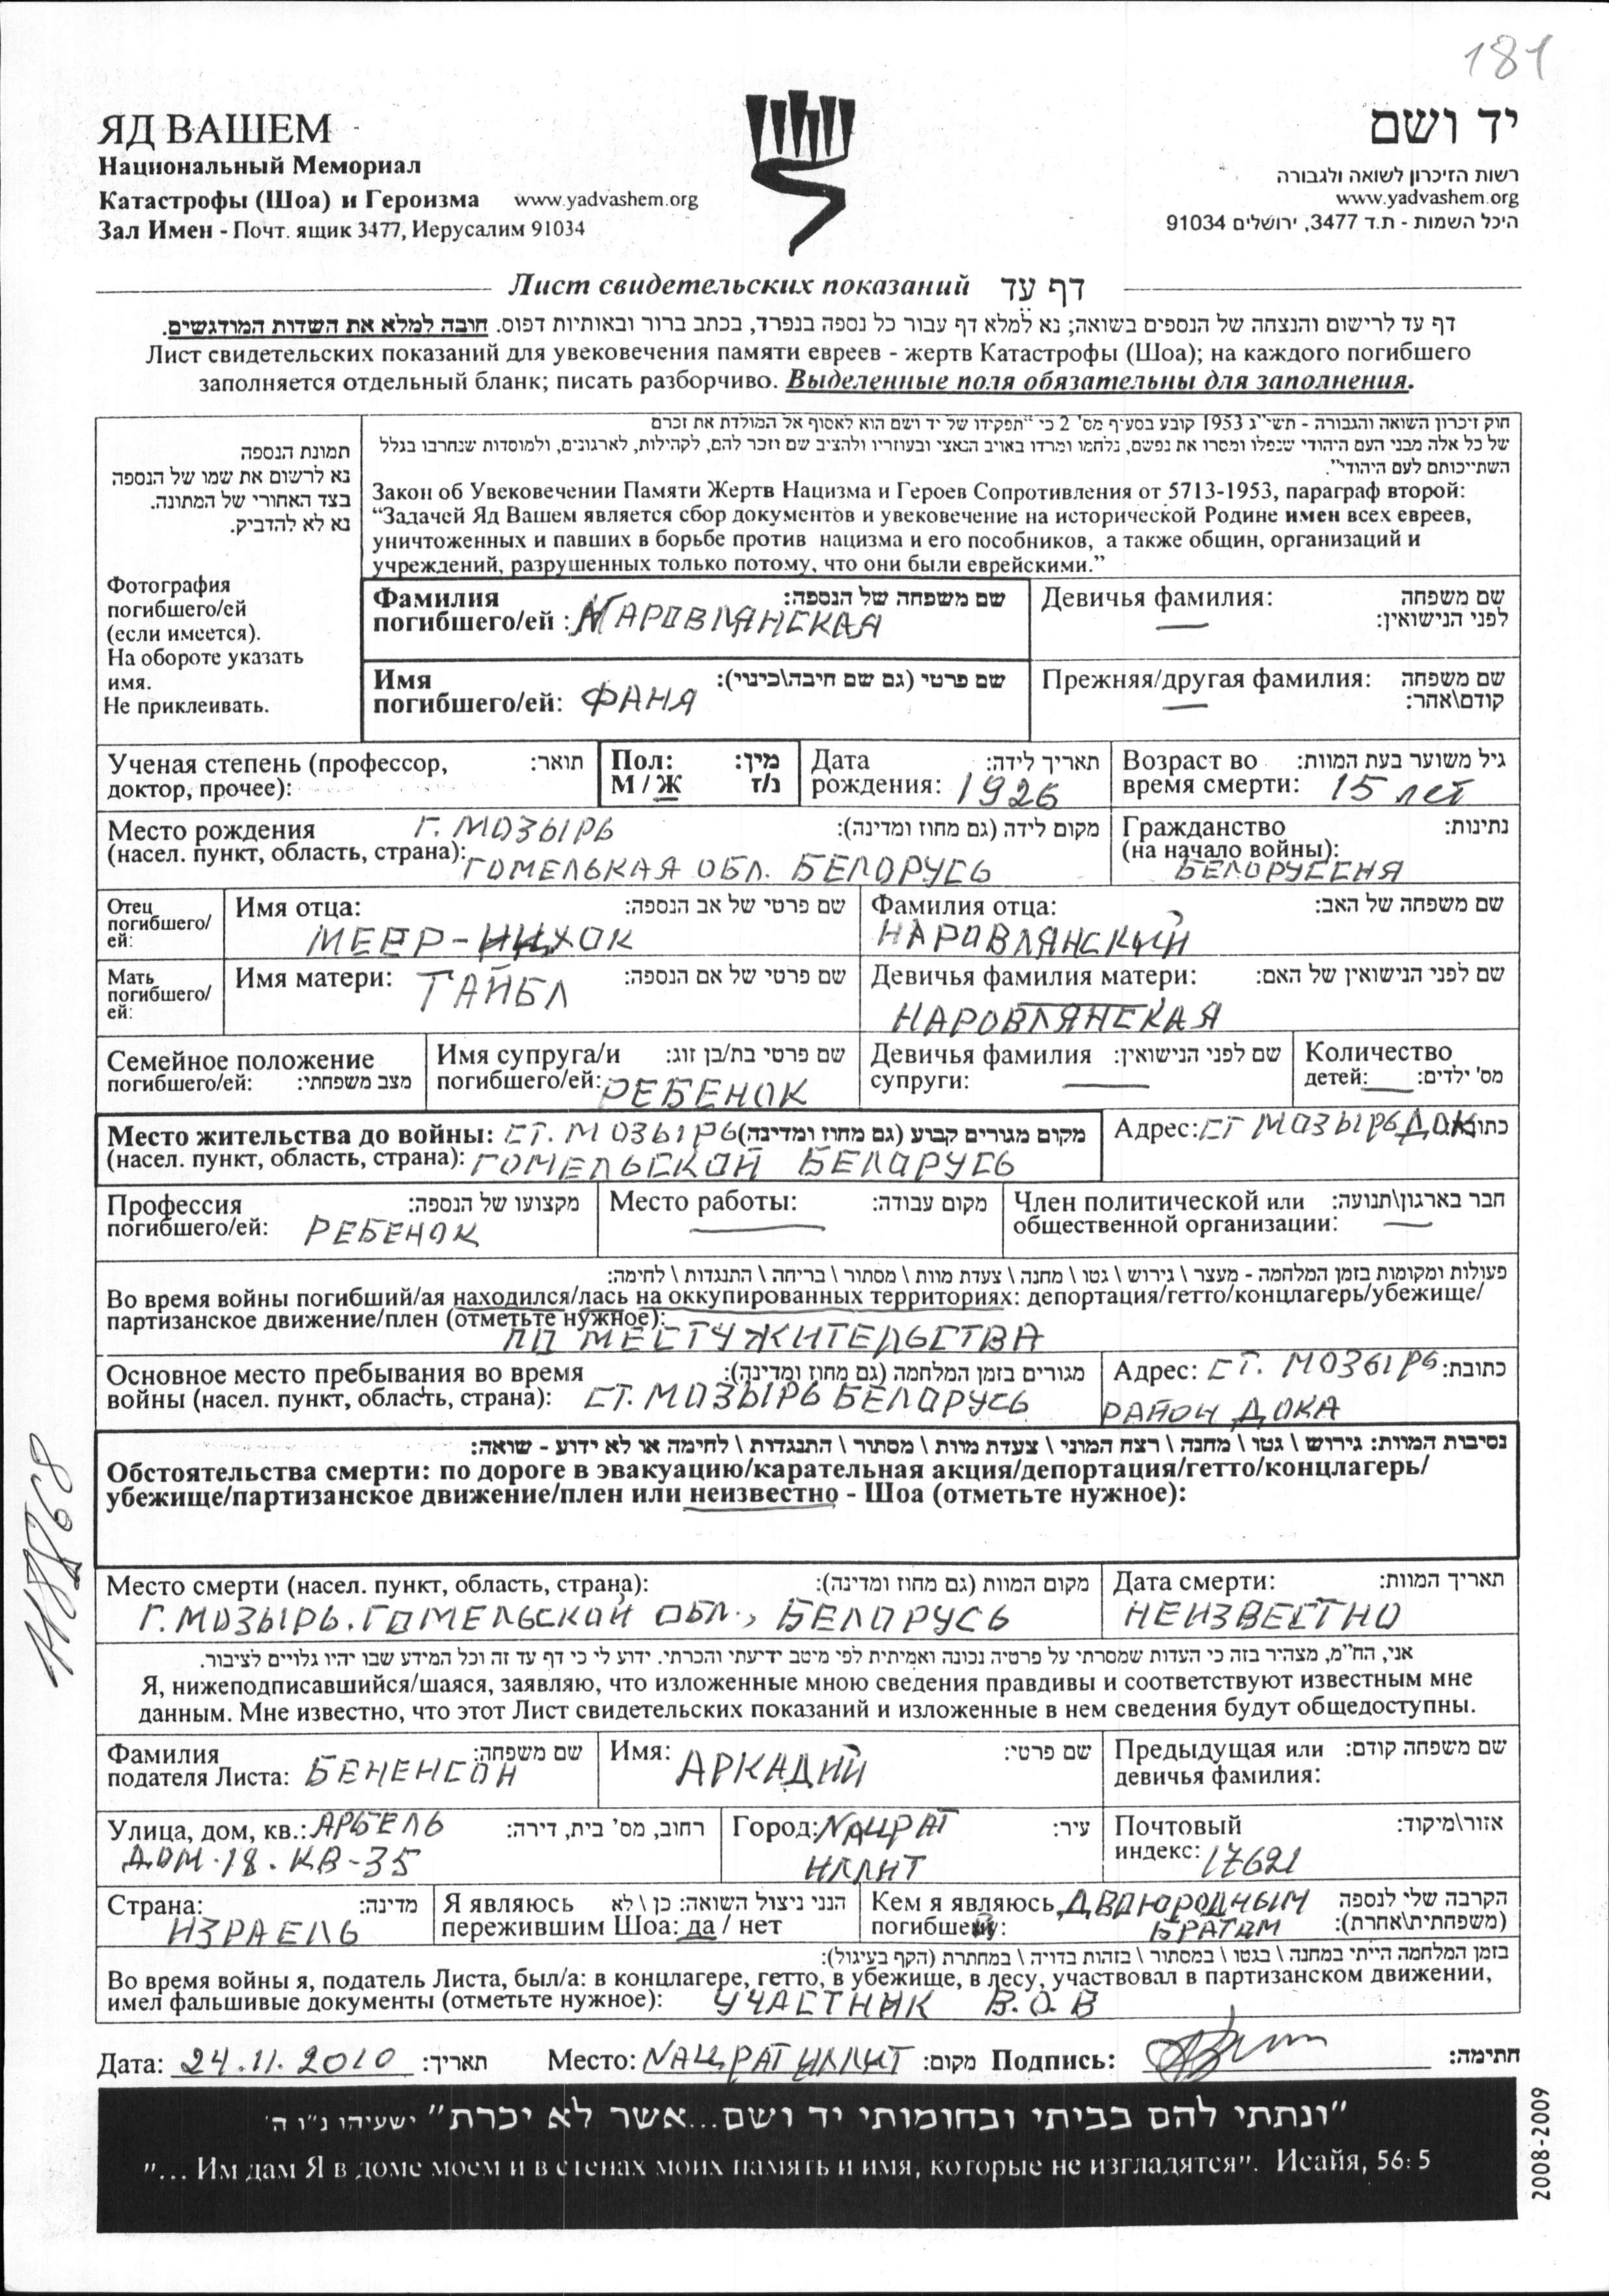 181
ЯД ВАШЕМ
Национальный Мемориал
Катастрофы (Шоа) и Героизма www.yadvashem.org
Зал Имен - Почт. ящик 3477, Иерусалим 91034
יד ושם
רשות הזיכרון לשואה ולגבורה
www.yadvashem.org
היכל השמות - ת.ד 3477, ירושלים 91034
Лист свидетельских показаний דף עד
דף עד לרישום והנצחה של הנספים בשואה; נא למלא דף עבור כל נספה בנפרד, בכתב ברור ובאותיות דפוס. חובה למלא את השדות המודגשים.
Лист свидетельских показаний для увековечения памяти евреев - жертв Катастрофы (Шоа); на каждого погибшего
заполняется отдельный бланк; писать разборчиво. Выделенные поля обязательны для заполнения.
תמונת הנספה
נא לרשום את שמו של הנספה
בצד האחורי של המתונה.
נא לא להדביק.
Фотография
погибшего/ей
(если имеется).
На обороте указать
имя.
Не приклеивать.
חוק זיכרון השואה והגבורה - תשי"ג 1953 קובע בסעיף מס' 2 כי "תפקידו של יד ושם הוא לאסוף אל המולדת את זכרם
של כל אלה מבני העם היהודי שנפלו ומסרו את נפשם, נלחמו ומרדו באויב הנאצי ובעוזריו ולהציב שם וזכר להם, לקהילות, לארגונים, ולמוסדות שנחרבו בגלל
השתייכותם לעם היהודי".
Закон об Увековечении Памяти Жертв Нацизма и Героев Сопротивления от 5713-1953, параграф второй:
“Задачей Яд Вашем является сбор документов и увековечение на исторической Родине имен всех евреев,
уничтоженных и павших в борьбе против нацизма и его пособников, а также общин, организаций и
учреждений, разрушенных только потому, что они были еврейскими.”
Фамилия שם משפחה של הנספה:
погибшего/ей : НАРОВЛЯНСКАЯ
Девичья фамилия: שם משפחה
— לפני הנישואין:
Имя שם פרטי (גם שם חיבה\כינוי):
погибшего/ей: ФАНЯ
Прежняя/другая фамилия: שם משפחה
— קודם\אחר:
Ученая степень (профессор, תואר:
доктор, прочее):
Пол: מין:
М / Ж נ/ז
Дата תאריך לידה:
рождения: 1926
Возраст во גיל משוער בעת המוות:
время смерти: 15 лет
Место рождения Г. МОЗЫРЬ מקום לידה (גם מחוז ומדינה):
(насел. пункт, область, страна): ГОМЕЛЬКАЯ ОБЛ. БЕЛОРУСЬ
Гражданство נתינות:
(на начало войны):
БЕЛОРУССНЯ
Отец
погибшего/
ей:
Имя отца: שם פרטי של אב הנספה:
Фамилия отца: שם משפחה של האב:
НАРОВЛЯНСКИЙ
Мать
погибшего/
ей:
Имя матери: ТАЙБЛ שם פרטי של אם הנספה:
Девичья фамилия матери: שם לפני הנישואין של האם:
НАРОВЛЯНСКАЯ
Семейное положение
погибшего/ей: מצב משפחתי:
Имя супруга/и שם פרטי בת/בן זוג:
погибшего/ей: РЕБЕНОК
Девичья фамилия שם לפני הנישואין:
супруги: —
Количество
детей: — מס' ילדים:
Место жительства до войны: СТ. МОЗЫРЬ מקום מגורים קבוע (גם מחוז ומדינה)
(насел. пункт, область, страна): ГОМЕЛЬСКОЙ БЕЛАРУСЬ
Адрес: СТ МОЗЫРЬ ДОК
Профессия מקצועו של הנספה:
погибшего/ей: РЕБЕНОК
Место работы: מקום עבודה:
—
Член политической или חבר בארגון\תנועה:
общественной организации: —
פעולות ומקומות בזמן המלחמה - מעצר \ גירוש \ גטו \ מחנה \ צעדת מוות \ מסתור \ בריחה \ התנגדות \ לחימה:
Во время войны погибший/ая находился/лась на оккупированных территориях: депортация/гетто/концлагерь/убежище/
партизанское движение/плен (отметьте нужное):
ПО МЕСТУ ЖИТЕЛЬСТВА
Основное место пребывания во время מגורים בזמן המלחמה (גם מחוז ומדינה):
войны (насел. пункт, область, страна): СТ. МОЗЫРЬ БЕЛАРУСЬ
Адрес: СТ. МОЗЫРЬ כתובת:
РАЙОН ДОКА
נסיבות המוות: גירוש \ גטו \ מחנה \ רצח המוני \ צעדת מוות \ מסתור \ התנגדות \ לחימה או לא ידוע - שואה:
Обстоятельства смерти: по дороге в эвакуацию/карательная акция/депортация/гетто/концлагерь/
убежище/партизанское движение/плен или неизвестно - Шоа (отметьте нужное):
Место смерти (насел. пункт, область, страна): מקום המוות (גם מחוז ומדינה):
Г. МОЗЫРЬ. ГОМЕЛЬСКОЙ ОБЛ., БЕЛАРУСЬ
Дата смерти: תאריך המוות:
НЕИЗВЕСТНО
אני, הח"מ, מצהיר בזה כי העדות שמסרתי על פרטיה נכונה ואמיתית לפי מיטב ידיעתי והכרתי. ידוע לי כי דף עד זה וכל המידע שבו יהיו גלויים לציבור.
Я, нижеподписавшийся/шаяся, заявляю, что изложенные мною сведения правдивы и соответствуют известным мне
данным. Мне известно, что этот Лист свидетельских показаний и изложенные в нем сведения будут общедоступны.
Фамилия שם משפחה:
подателя Листа: БЕНЕНСОН
Имя: АРКАДИЙ שם פרטי:
Предыдущая или שם משפחה קודם:
девичья фамилия:
Улица, дом, кв.: АРБЕЛЬ רחוב, מס' בית, דירה:
ДОМ-18. КВ-35
Город: NАЦРАТ עיר:
ИЛЛИТ
Почтовый אזור\מיקוד:
индекс: 17621
Страна: מדינה:
ИЗРАЕЛЬ
Я являюсь הנני ניצול השואה: כן \ לא
пережившим Шоа: да / нет
Кем я являюсь ДВОЮРОДНЫМ הקרבה שלי לנספה
погибшему: БРАТОМ (משפחתית\אחרת):
בזמן המלחמה הייתי במחנה \ בגטו \ במסתור \ בזהות בדויה \ במחתרת (הקף בעיגול):
Во время войны я, податель Листа, был/а: в концлагере, гетто, в убежище, в лесу, участвовал в партизанском движении,
имел фальшивые документы (отметьте нужное): УЧАСТНИК В.О.В
Дата: 24.11.2010 תאריך: Место: NАЦРАТ ИЛЛИТ מקום: Подпись: חתימה:
"ונתתי להם בביתי ובחומותי יד ושם...אשר לא יכרת" ישעיהו נ"ו ה'
"... Им дам Я в доме моем и в стенах моих память и имя, которые не изгладятся". Исайя, 56: 5
2008-2009